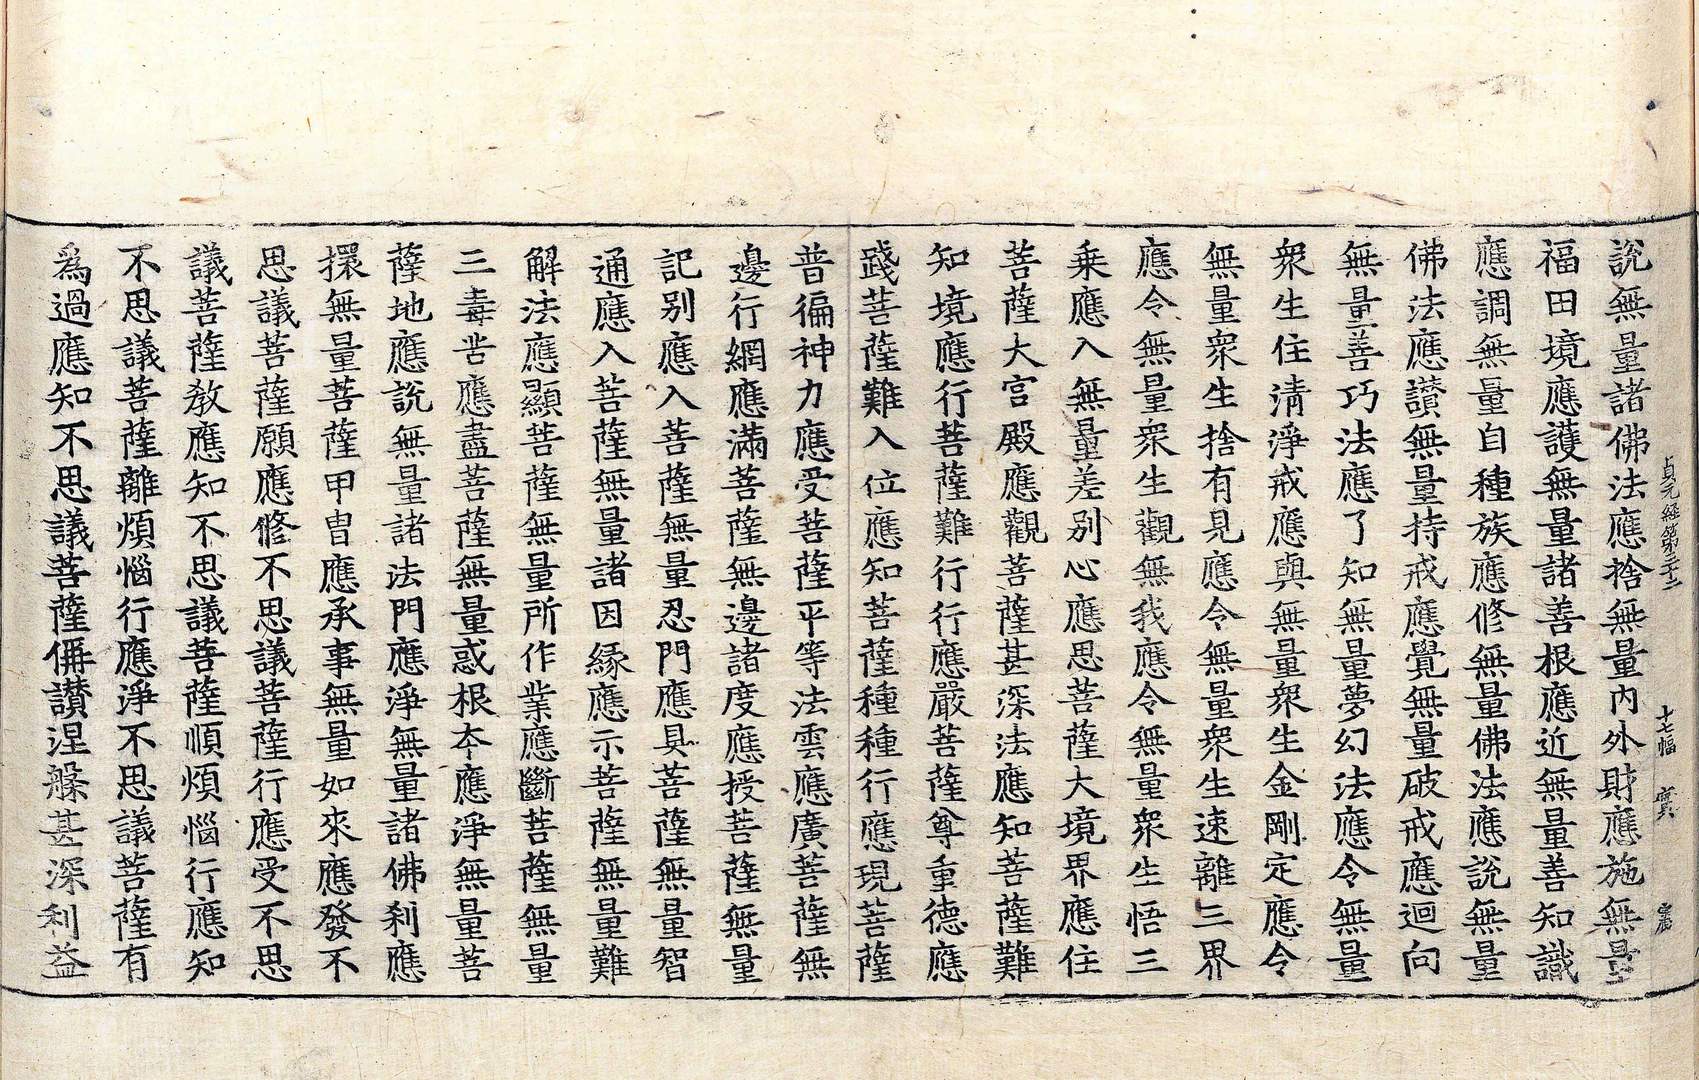 貞元經第三十二 十七幅 㝠 
說無量諸佛法應捨無量內外財應施無量
福田境應護無量諸善根應近無量善知識
應調無量自種族應修無量佛法應說無量
佛法應讃無量持戒應覺無量破戒應迴向
無量善巧法應了知無量夢幻法應令無量
衆生住清淨戒應與無量衆生金剛定應令
無量衆生捨有見應令無量衆生速離三界
應令無量衆生觀無我應令無量衆生悟三
乗應入無量差別心應思菩薩大境界應住
菩薩大宮殿應觀菩薩甚深法應知菩薩難
知境應行菩薩難行行應嚴菩薩尊重德應
踐菩薩難入位應知菩薩種種行應現菩薩
普徧神力應受菩薩平等法雲應廣菩薩無
邊行網應滿菩薩無邊諸度應授菩薩無量
記別應入菩薩無量忍門應具菩薩無量智
通應入菩薩無量諸因縁應示菩薩無量難
解法應顯菩薩無量所作業應斷菩薩無量
三毒芒應盡菩薩無量惑根夲應淨無量菩
薩地應說無量諸法門應淨無量諸佛刹應
擐無量菩薩甲冑應承事無量如來應發不
思議菩薩願應修不思議菩薩行應受不思
議菩薩教應知不思議菩薩順煩惱行應知
不思議菩薩離煩惱行應淨不思議菩薩有
爲過應知不思議菩薩偁讃涅槃甚深利益